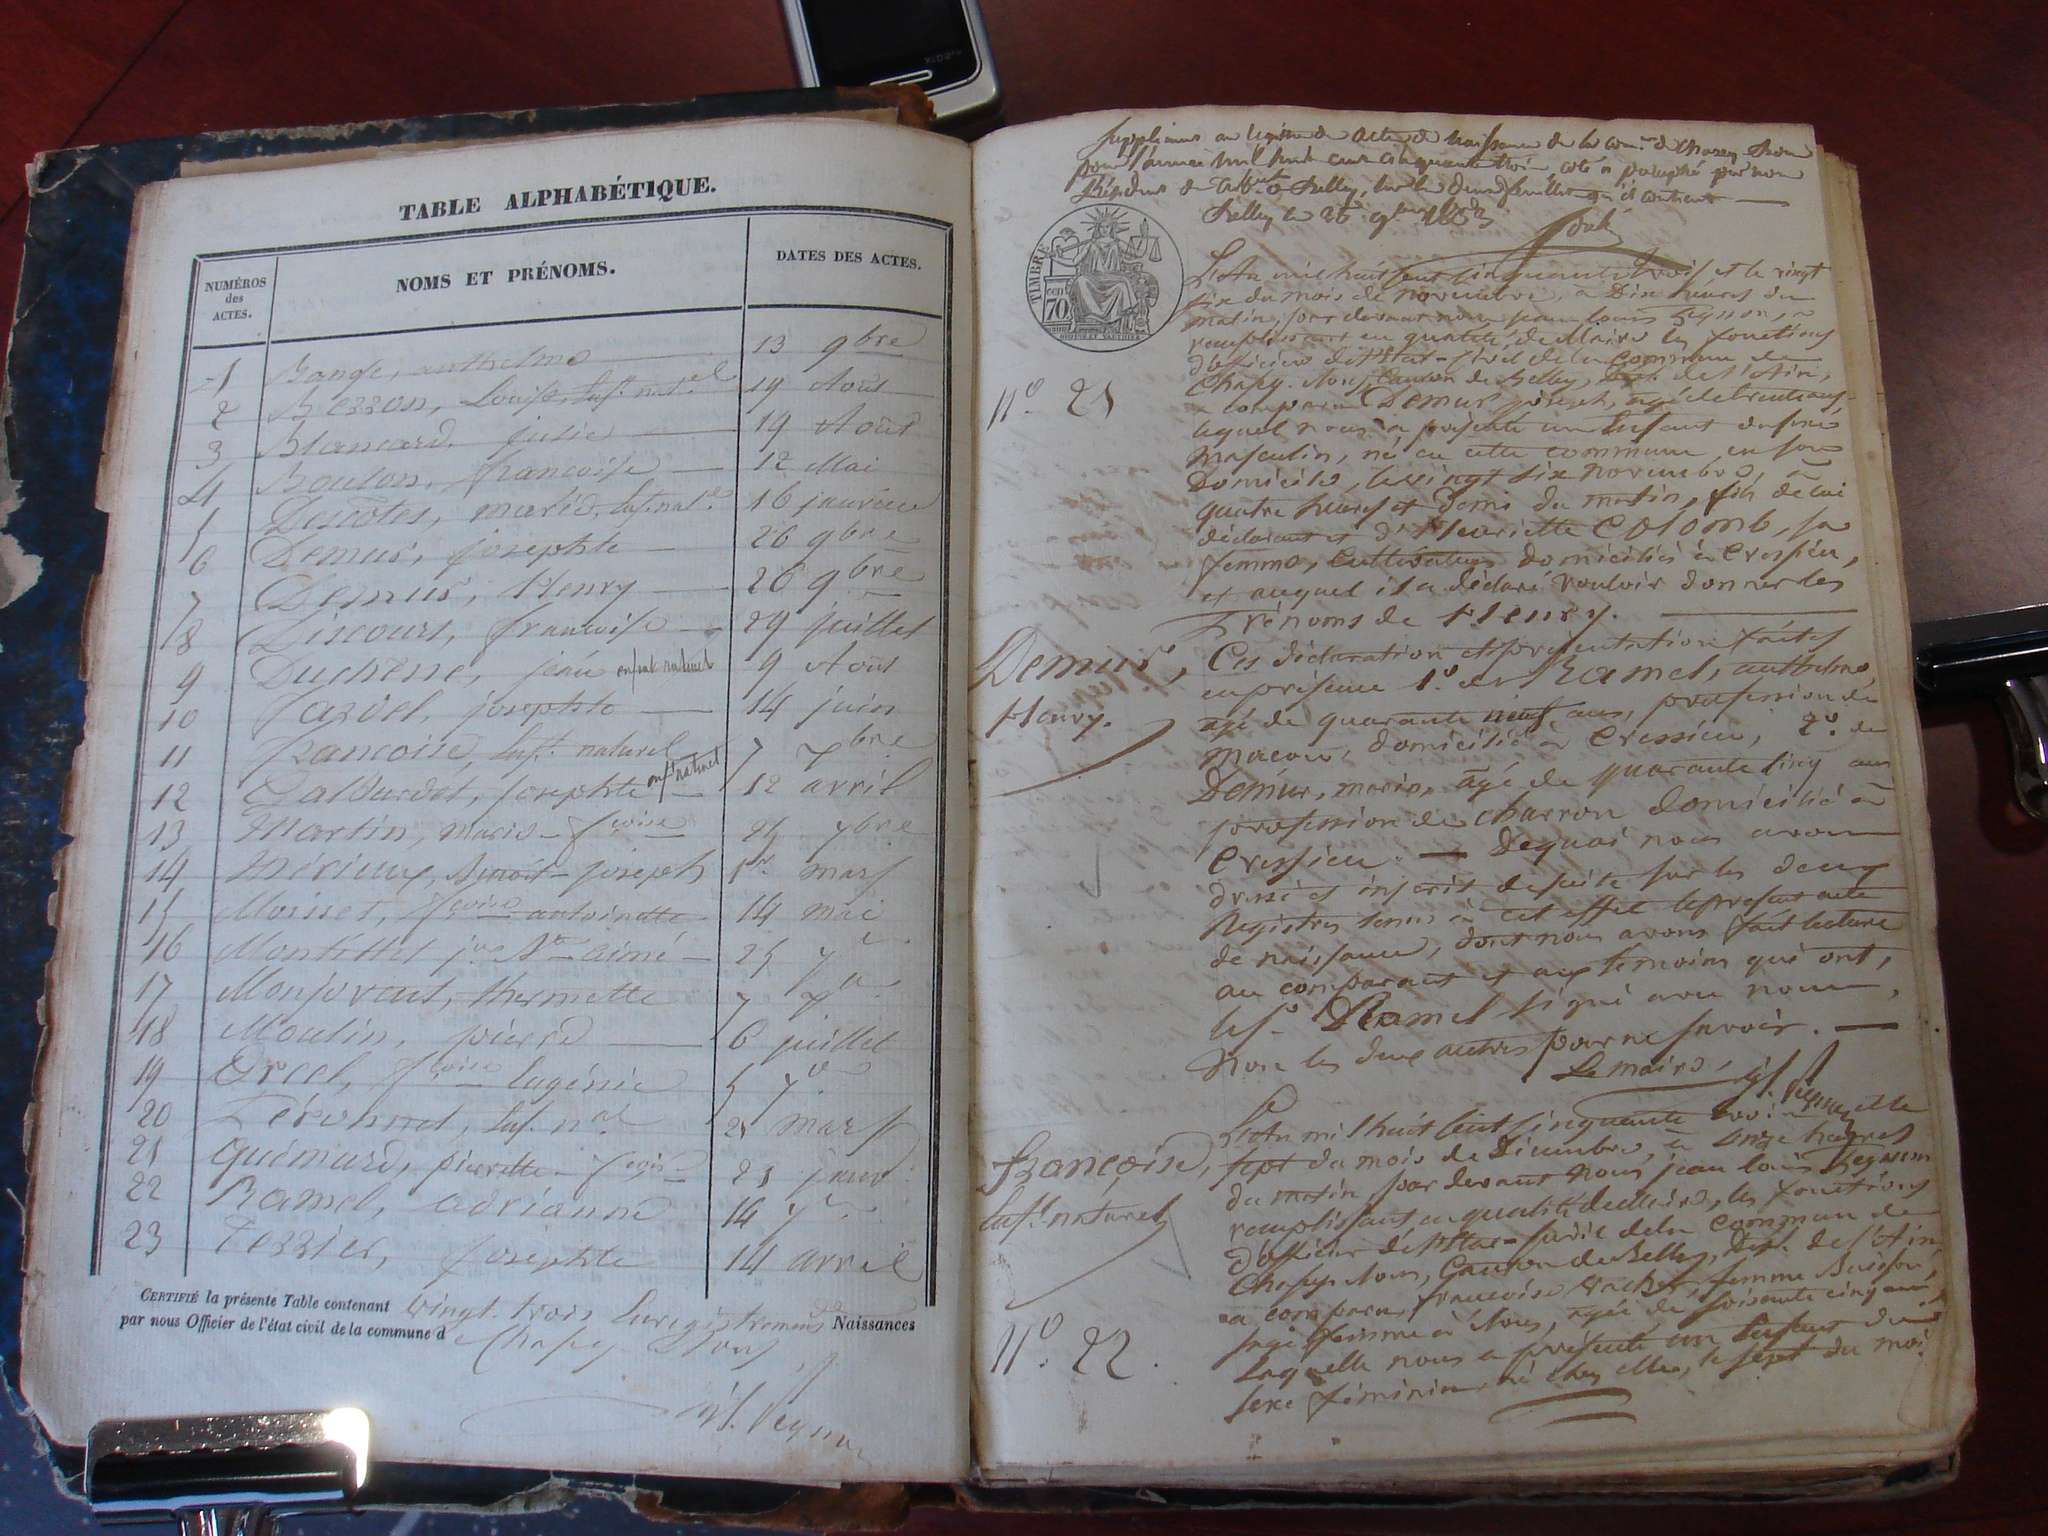 TABLE ALPHABÉTIQUE.
NUMÉROS des ACTES.
NOMS ET PRÉNOMS.
DATES DES ACTES.
1 Bange, anthelme 13 9bre
2 Bezzon, Louise, Enf. nat.el 19 Août
3 Blancard, julie 19 Août
4 Bouton, françoise 12 Mai
5 Descôtes, marie, Enf. nat.el 16 janvier
6 Demur, josephte 26 9bre
7 Demur, Henry 26 9bre
8 Discours, françoise 29 juillet
9 Duchene, jean enfant naturel 9 Août
10 josephte 14 juin
11 françoise, Enft. naturel 7 Xbre
12 josephte enft naturel 12 avril
13 Martin, marie-fçoise 25 7bre
14 Mérieux, Benoit-joseph 1er mars
15 Moisset, fçoise antoinette 14 mai
16 Montillet jn Bte aimé 25
17 Monjovent, thermette 7
18 Moulin, pierre 6 juillet
19 Orcel, fçoise Eugénie 5
20 Péronnet, Enf. nat. 21 mars
21 Quémard, pierrette-fçoise 21 janv.
22 Ramel, adrianne 14
23 Tezzier, josephte 14 avril
CERTIFIÉ la présente Table contenant vingt trois Enregistremens de Naissances
par nous Officier de l'état civil de la commune de Chazey-Bons
Supplément au registre des actes de naissance de la com.ne de Chazey-Bons
pour l'année mil huit cent cinquante trois, coté et paraphé par nous
Président du de Belley, sur les deux feuillets qu'il contient
Belley le 26 9bre 1853
TIMBRE
70
L'An mil huit cent cinquante trois et le vingt
six du mois de novembre, à Dix heures du
matin, par devant nous jean louis Peysson,
remplissant en qualité de Maire les fonctions
d'officier de l'Etat-Civil de la commune de
Chazey-Bons, Canton de Belley, Dépt. de l'Ain,
N.o 21
a comparu Demur joseph, âgé de trente ans,
lequel nous a présenté un Enfant du sexe
masculin, né en cette commune, en son
Domicile, le vingt six novembre, à
quatre heures et demi du matin, fils de lui
déclarant et d'Henriette COLOMB, sa
femme, Cultivateurs domiciliés à Cressieu,
et auquel il a déclaré vouloir donner les
Prénoms de Henry.
Demur,
Henry.
Ces déclaration et présentation faites
en présence 1.o de Ramel, anthelme,
âgé de quarante neuf ans, profession de
macon, domicilié à Cressieu, 2.o de
Démur, marin, âgé de quarante cinq ans
profession de charron domicilié à
Cressieu. — Dequoi nous avons
dressé et inscrit de suite sur les deux
Registres tenus à cet effet le présent acte
de naissance, dont nous avons fait lecture
au comparant et aux temoins qui ont,
le sr. Ramel signé avec nous,
non les deux autres pour ne savoir. —
Le maire,
L'An mil huit cent cinquante trois et le
françoise,
sept du mois de Décembre, à onze heures
du matin, par devant nous jean louis Peysson
Enft. naturel
remplissant en qualité de Maire, les fonctions
d'officier de l'Etat-Civil de la commune de
Chazey-Bons, Canton de Belley, Dépt. de l'Ain,
a comparu françoise femme Buisson,
sage femme à Bons, âgée de soixante cinq ans,
N.o 22.
Laquelle nous a présenté un Enfant du
sexe féminin, né chez elle, le sept du mois